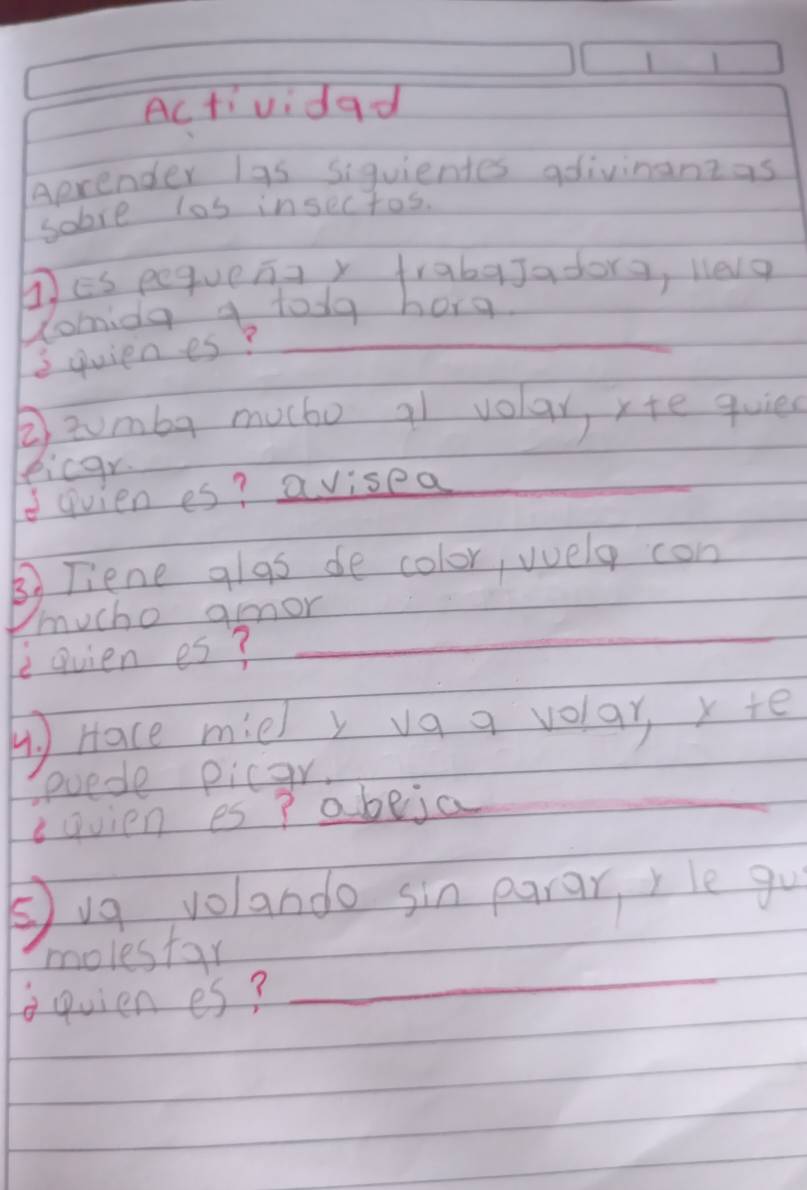 Actividad
Aprender las siguientes adivinanzas
sobre los insectos.
1.) Es pequeña y trabajadora, lleva
comida a toda hora.
¿quien es?
2) zumba mucho al volar, y te quier
picar.
¿quien es? avispa
3.) Tiene alas de color, vuela con
mucho amor
¿quien es?
4.) Hace miel y va a volar, y te
puede picar.
¿quien es? abeja
5) va volando sin parar, y le gu
molestar
¿quien es?